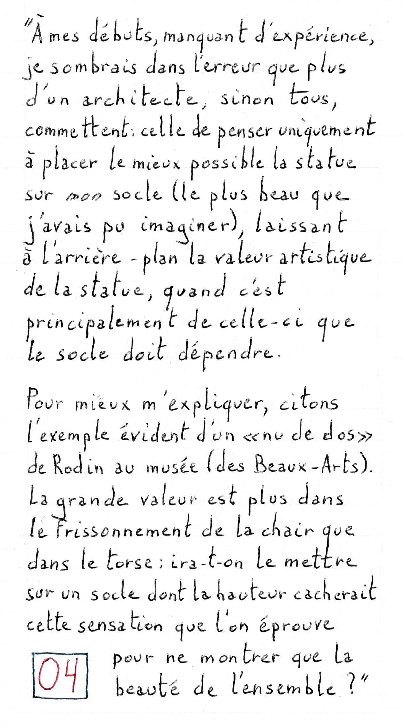 "À mes débuts, manquant d'expérience,
je sombrais dans l'erreur que plus
d'un architecte, sinon tous,
commettent: celle de penser uniquement
à placer le mieux possible la statue
sur mon socle (le plus beau que
j'avais pu imaginer), laissant
à l'arrière-plan la valeur artistique
de la statue, quand c'est
principalement de celle-ci que
le socle doit dépendre.
Pour mieux m'expliquer, citons
l'exemple évident d'un «nu de dos»
de Rodin au musée (des Beaux-Arts).
La grande valeur est plus dans
le frissonnement de la chair que
dans le torse: ira-t-on le mettre
sur un socle dont la hauteur cacherait
cette sensation que l'on éprouve
pour ne montrer que la
beauté de l'ensemble ?"
04